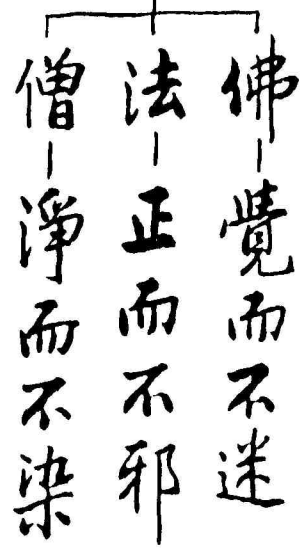 佛—覺而不迷
法—正而不邪
僧—淨而不染